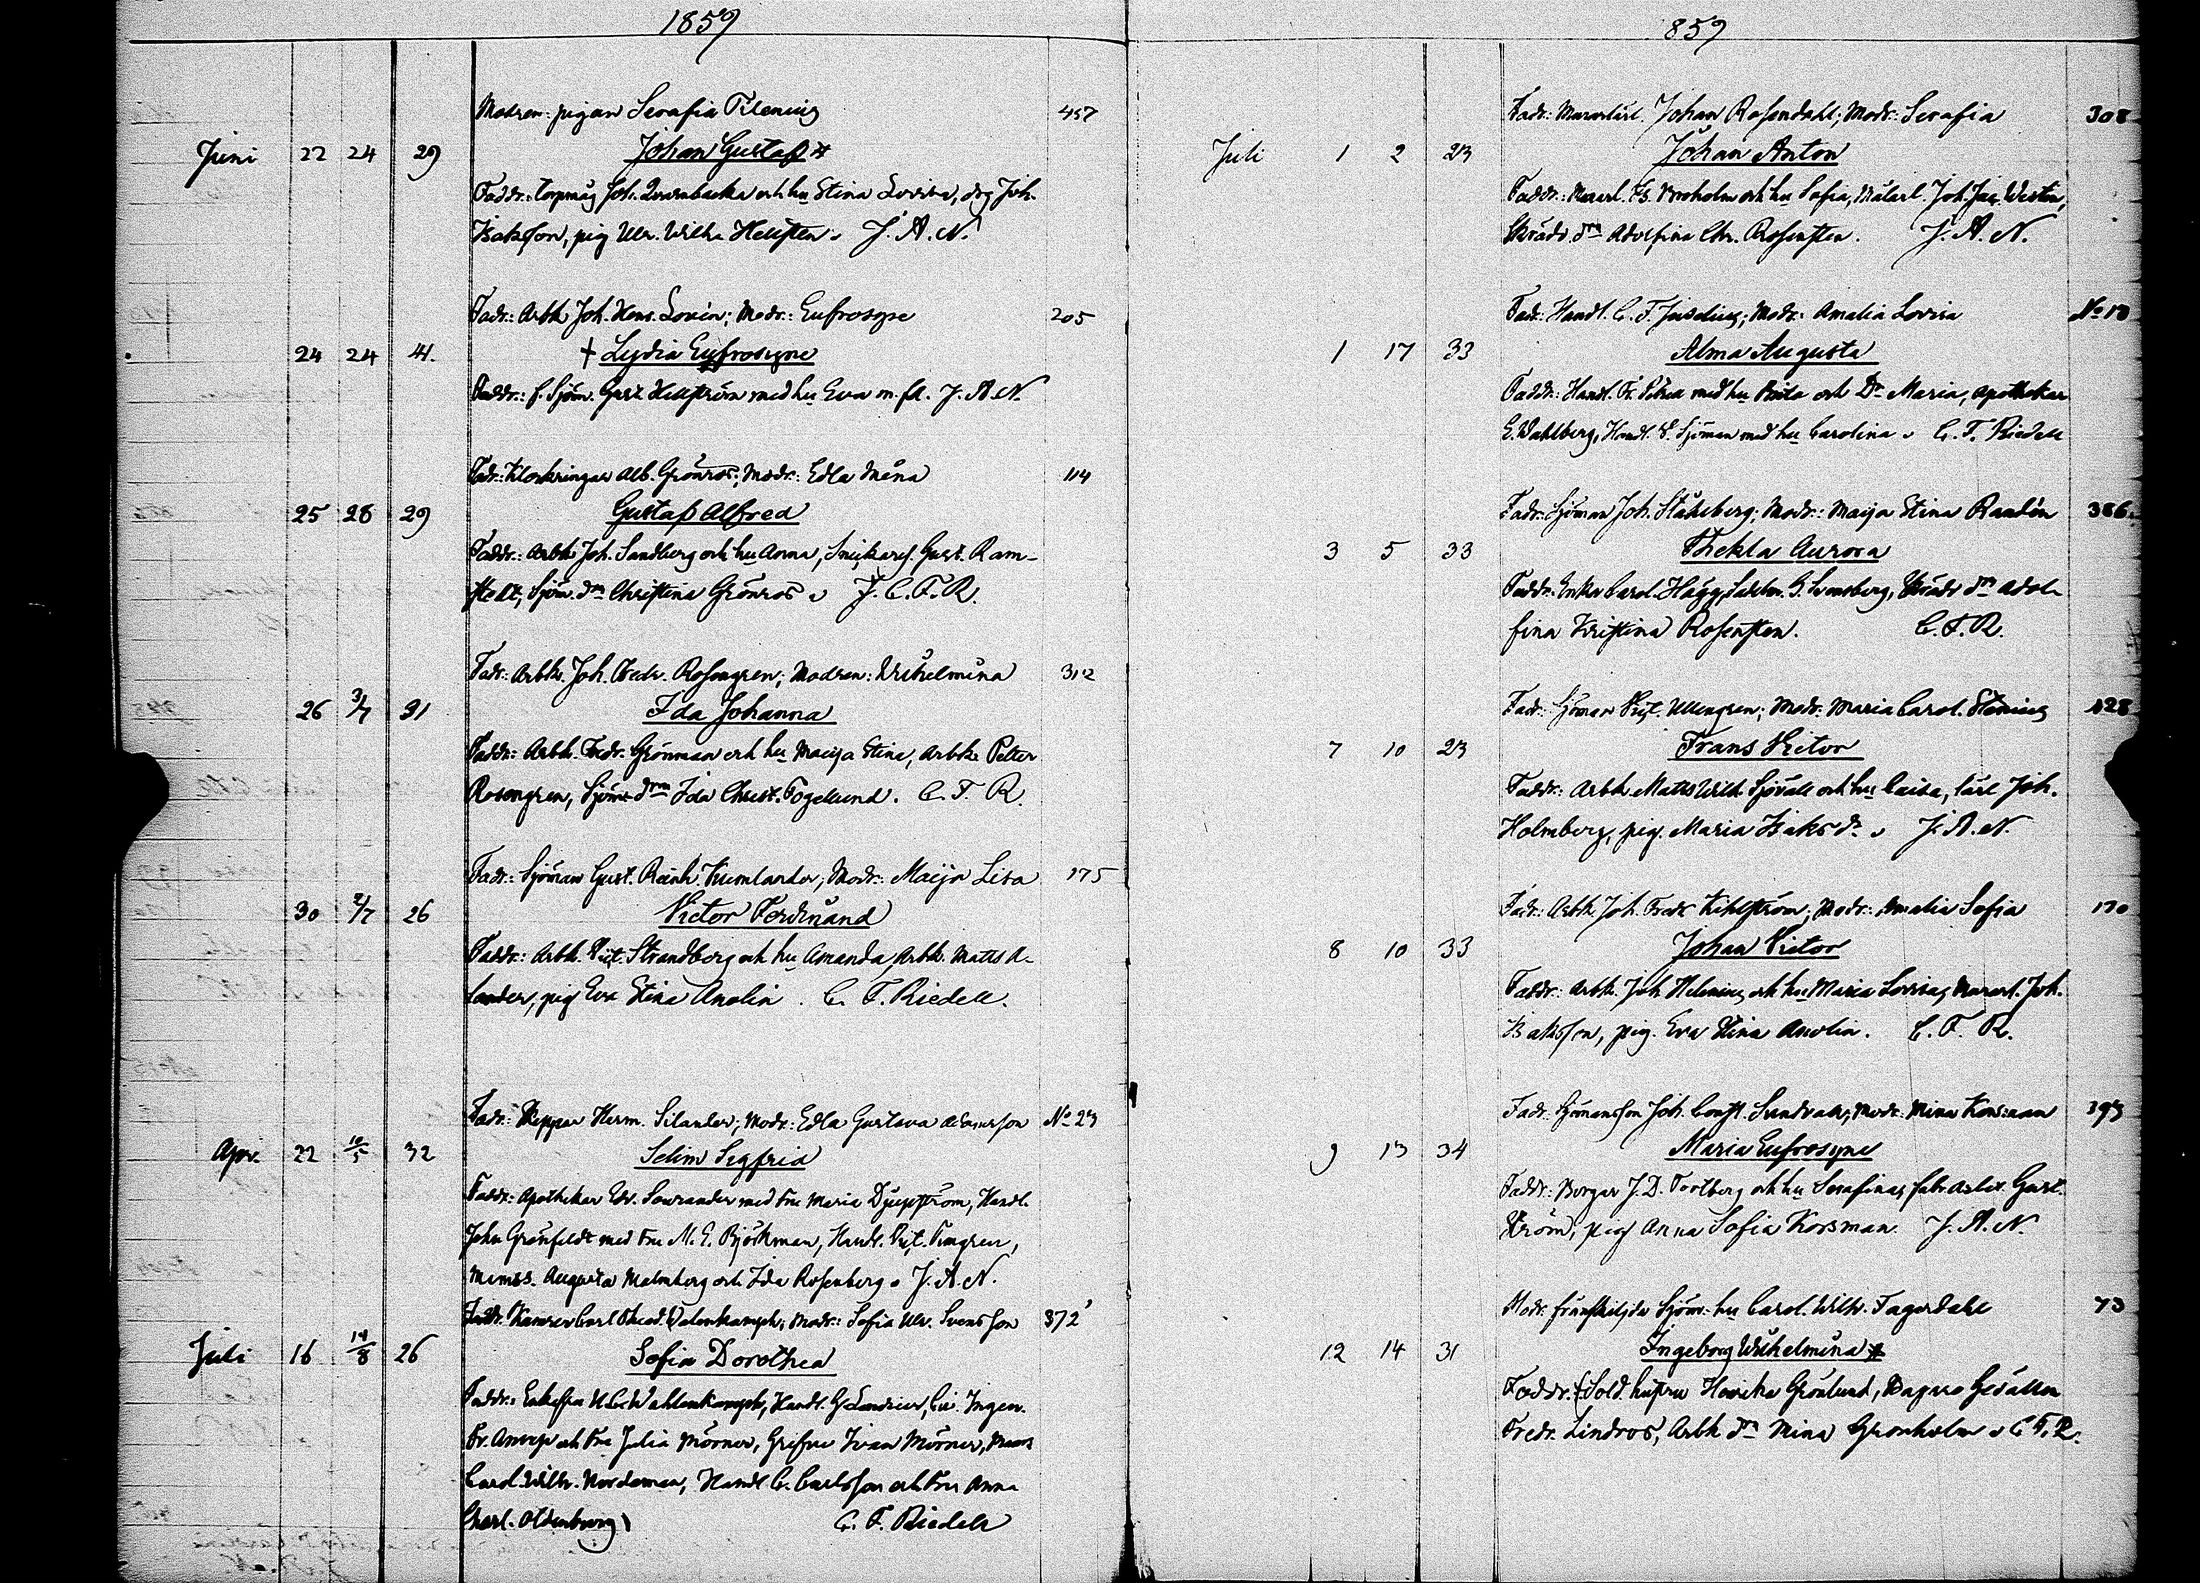 1859
Modren: pigan Serafia
457
Juni 22 24 29 Johan Gustaf *
Faddr.: torpmåg Joh. och hu Stina Lovisa, drg Joh.
Isaksson, pig Ulr. Wilh. Hellsten. J. A. N.
Fadr.: Arbk Joh. Henr. Lovén; Modr.: Eufrosyne 205
24 24 41. † Lydia Eufrosyne
Faddr.: f. Sjöm. Gust. Hellström med hu Eva m. fl. J. A. N.
Fadr.: Klockringar Alb. Grönros; Modr.: Edla Mina 114
25 28 29 Gustaf Alfred
Faddr.: Arbk Joh. Sandberg och hu Anna, Snickarg. Gust. Ram-
stedt, Sjöm. dm Christina Grönros J. C. F. R.
Fadr.: Arbk. Joh. Fredr. Rosengren; Modren: Wilhelmina 312
26 3/7 31 Ida Johanna
Faddr.: Arbk. Fredr. Grönman och hu Maija Stina, Arbk. Petter
Rosengren, Sjöm dm Ida Christ. Fogelund. C. F. R.
Fadr.: Sjöman Gust. Reinh. Kumlander; Modr.: Maija Lisa 175
30 2/7 26 Victor Ferdinand
Faddr.: Arbk. Vict. Strandberg och hu Amanda, Arbk. Matts A-
lander, pig Eva Stina Anolin. C. F. Riedell.
Fadr.: Skeppar Herm. Silander; Modr.: Edla Gustava No 23
Apr. 22 10/5 32 Selim Sigfrid
Faddr.: Apothekar Edv. med Fru Maria Djupström, Handl.
John Grönfeldt med Fru M. E. Björkman, Handl. Vict.
Mamss. Augusta Malmberg och Ida Rosenberg. J. A. N.
Fadr. Carl Theod. Modr.: Sofia Ulr. Svensson 372
Juli 16 14/8 26 Sofia Dorothea
Faddr.: Enkefru Handl. G. Civ. Ingen.
Fr. och Fru Julia Mörner, Grefve Ivan Mörner, Mams
Carol. Wilh. Nordeman, Handl C. Carlsson och Fru Anna
Charl. Oldenburg C. F. Riedell
859
Fadr.: Murarlärl. Johan Rosendahl; Modr: Serafia 308
Juli 1 2 23 Johan Anton
Faddr.: Murarl. och hu Sofia, Målarl. Joh. Jac. Westin,
Skrädd. dm Adolfina Chr. Rosensten. J. A. N.
Fadr. Handl. C. F. Juselius; Modr: Amalia Lovisa No 10
1 17 33 Alma Augusta
Faddr.: Handl. Fr. Petrea med hu och Dr Maria, Apothekar
E. Wahlberg, Handl. Sjöman med hu Carolina C. F. Riedell
Fadr. Sjöman Joh. Stålsberg; Modr: Maija Stina Randén 386.
3 5 33 Thekla Aurora
Faddr: Enkn Carol. Hägg, G. Svensberg, Skrädd dm Adol-
fina Kristina Rosensten. C. F. R.
Fadr. Sjöman Vict. Ullengren; Modr: Maria Carol. 128
7 10 23 Frans Victor
Faddr: Arbk Matts Wilh Sjövall och hu Caisa, lärl Joh.
Holmberg, pig. Maria Isaks dr J. A. N.
Fadr: Arbk Joh. Fredr Kihlström; Modr: Amalia Sofia 170
8 10 33 Johan Victor
Faddr: Arbk. Joh Helenius och hu Maria Lovisa, Murarl. Joh.
Isaksson, pig. Eva Stina Anolin. C. F. R.
Fadr. Sjömansson Joh. Const. Sundvall; Modr. Mina Korsman 193
9 13 34 Maria Eufrosyne
Faddr: Borgar J. D. och hu Serafina, fabr. arbet. Gust.
Ström, pig Anna Sofia Korsman. J. A. N.
Modr. frånskiljda Sjöm. hu Carol. Wilh. Fagerdahl 73
12 14 31 Ingeborg Wilhelmina *
Faddr. Sold. hustru Henrika Grönlund, Bagare Gesällen
Fredr. Lindros, Arbk dr Mina Grönholm C. F. R.